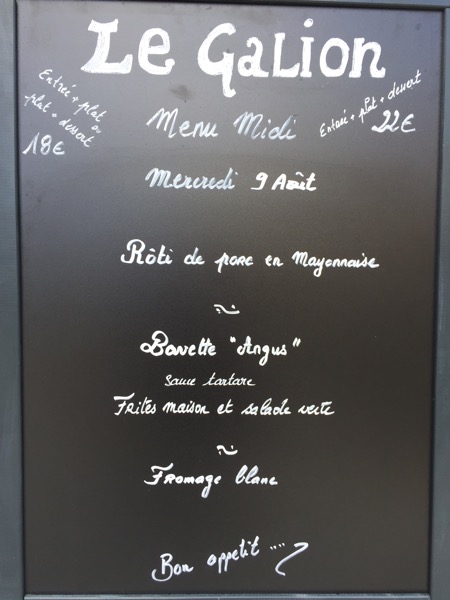 Le Galion
Entrée + plat ou
plat + dessert
18€
Menu Midi
Entrée + plat + dessert
22€
Mercredi 9 Août
Rôti de porc en Mayonnaise
Bavette "Angus"
sauce tartare
Frites maison et salade verte
Fromage blanc
Bon appetit ....